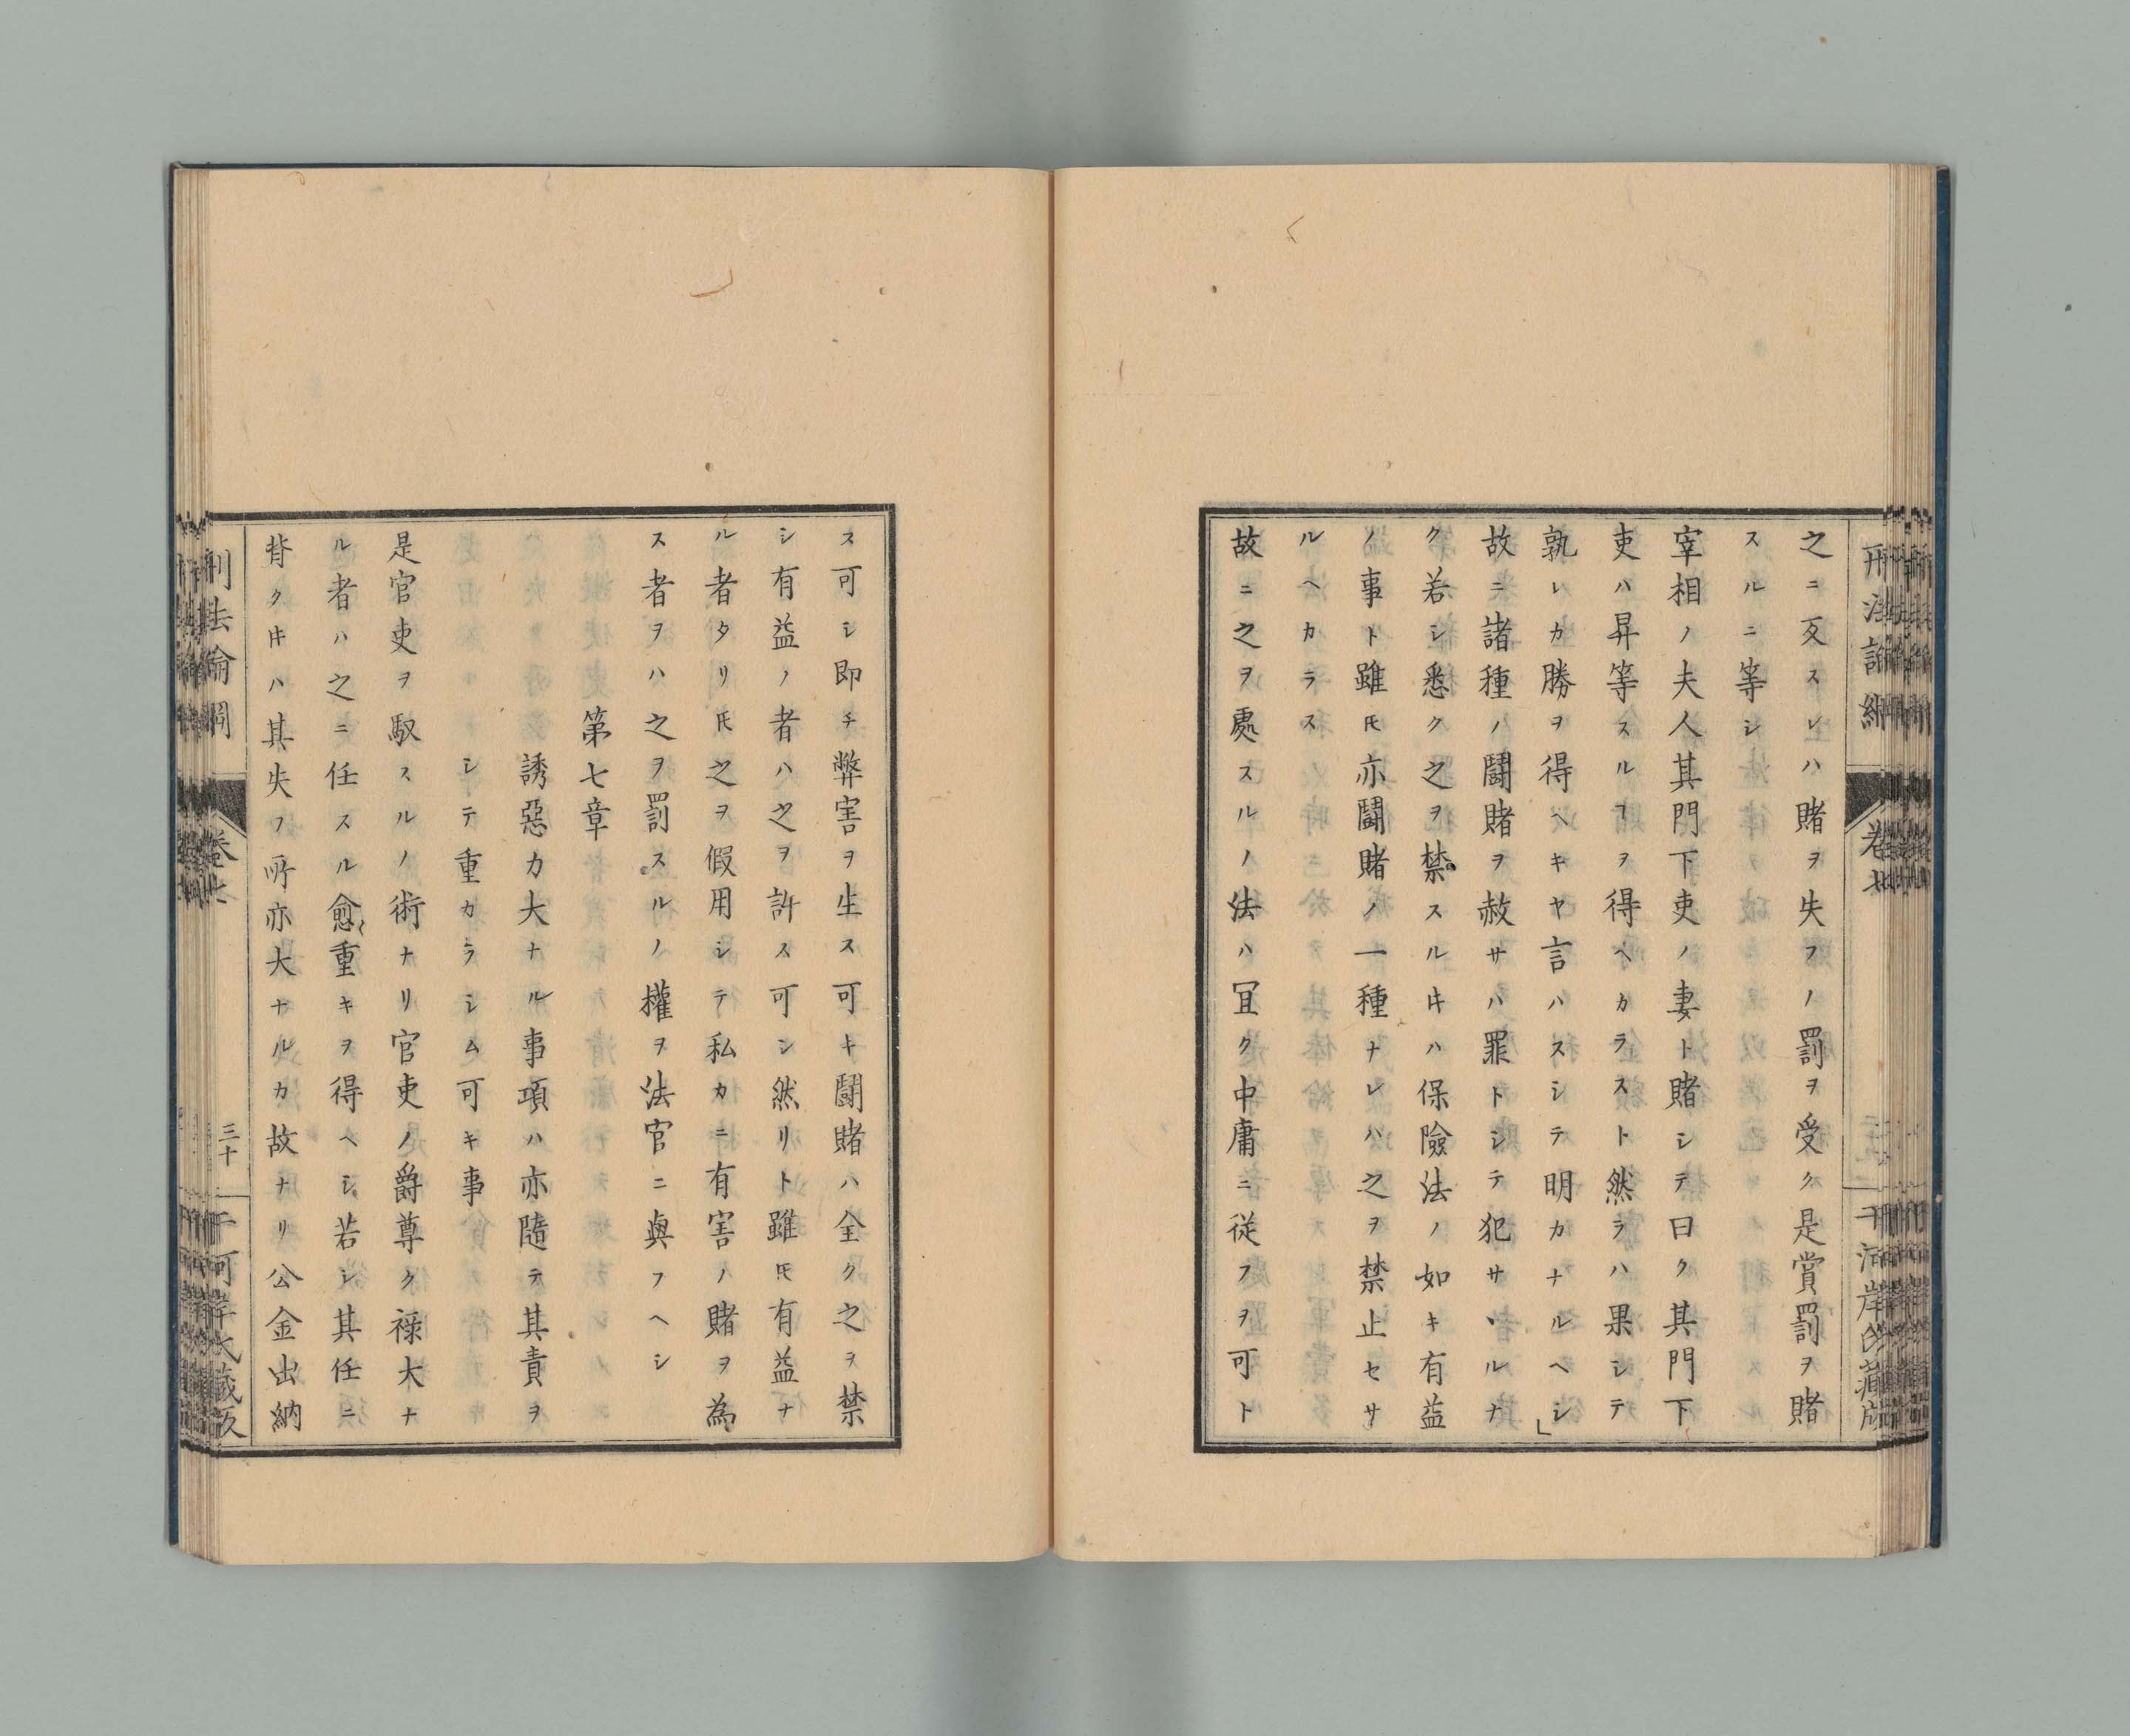 之ニ反スレハ賭ヲ失フノ罰ヲ受ク是賞罰ヲ賭
スルニ等シ
宰相ノ夫人其門下吏ノ妻ト賭シテ曰ク其門下
吏ハ昇等スルヿヲ得ヘカラスト然ラハ果シテ
孰レカ勝ヲ得ヘキヤ言ハスシテ明カナルヘシ」
故ニ諸種ノ闘賭ヲ赦サハ罪トシテ犯サヽルナ
ク若シ悉ク之ヲ禁スル𪜈ハ保險法ノ如キ有益
ノ事ト雖𪜈亦闘賭ノ一種ナレハ之ヲ禁止セサ
ルヘカラス
故ニ之ヲ處スルノ法ハ冝ク中庸ニ従フヲ可ト
ス可シ即チ弊害ヲ生ス可キ闘賭ハ全ク之ヲ禁
シ有益ノ者ハ之ヲ許ス可シ然リト雖𪜈有益ナ
ル者タリ𪜈之ヲ假用シテ私カニ有害ノ賭ヲ為
ス者ヲハ之ヲ罰スルノ權ヲ法官ニ與フヘシ
第七章
誘惡カ大ナル事項ハ亦隨テ其責ヲ
シテ重カラシム可キ事
是官吏ヲ馭スルノ術ナリ官吏ノ爵尊ク禄大ナ
ル者ハ之ニ任スル愈重キヲ得ヘシ若シ其任ニ
背クキハ其失フ所亦大ナルカ故ナリ公金出納
刑法論綱
卷七
三十